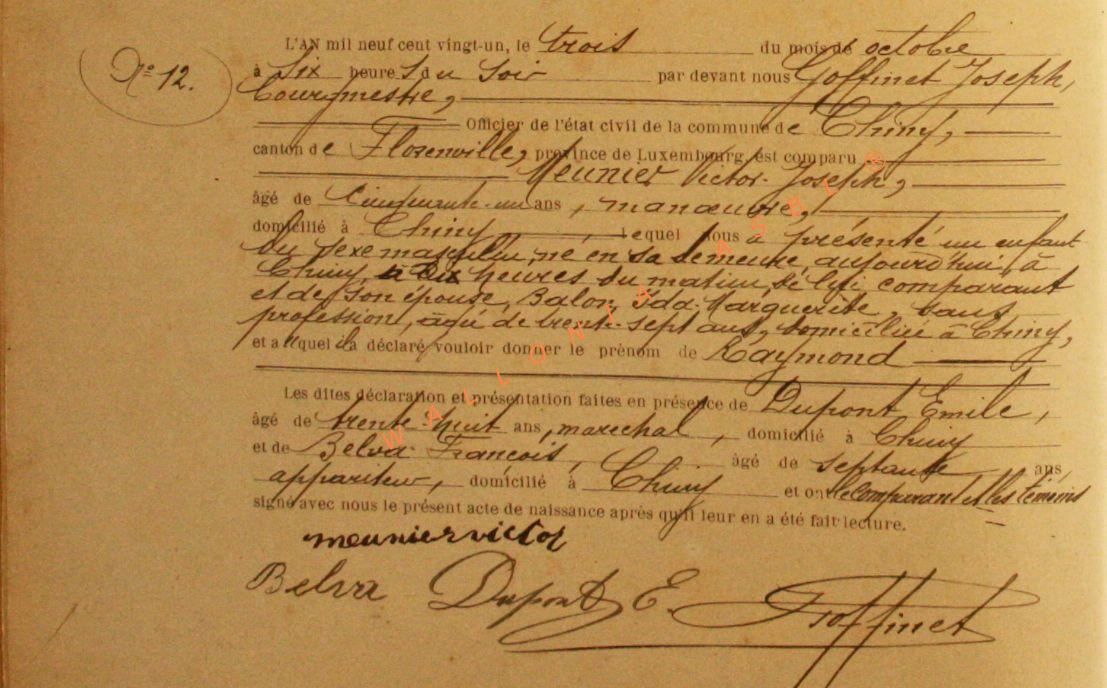 N° 12.
L'AN mil neuf cent vingt-un, le trois du mois de octobre
à six heures du soir par devant nous Goffinet Joseph,
bourgmestre,
Officier de l'état civil de la commune de Chiny,
canton de Florenville, province de Luxembourg, est comparu
Meunier Victor-Joseph,
âgé de cinquante-un ans, manœuvre,
domicilié à Chiny, lequel nous a présenté un enfant
du sexe masculin, né en sa demeure, aujourd'hui, à
Chiny, à dix heures du matin, de lui comparant
et de son épouse, Balon, Ida-Marguerite, sans
profession, âgée de trente-sept ans, domiciliée à Chiny,
et auquel il a déclaré vouloir donner le prénom de Raymond
Les dites déclaration et présentation faites en présence de Dupont Emile,
âgé de trente-huit ans, maréchal, domicilié à Chiny
et de Belva François, âgé de septante ans,
appariteur, domicilié à Chiny et ont le comparant et les témoins
signé avec nous le présent acte de naissance après qu'il leur en a été fait lecture.
meunier victor
Belva Dupont E. Goffinet
WALLONIA ASBL